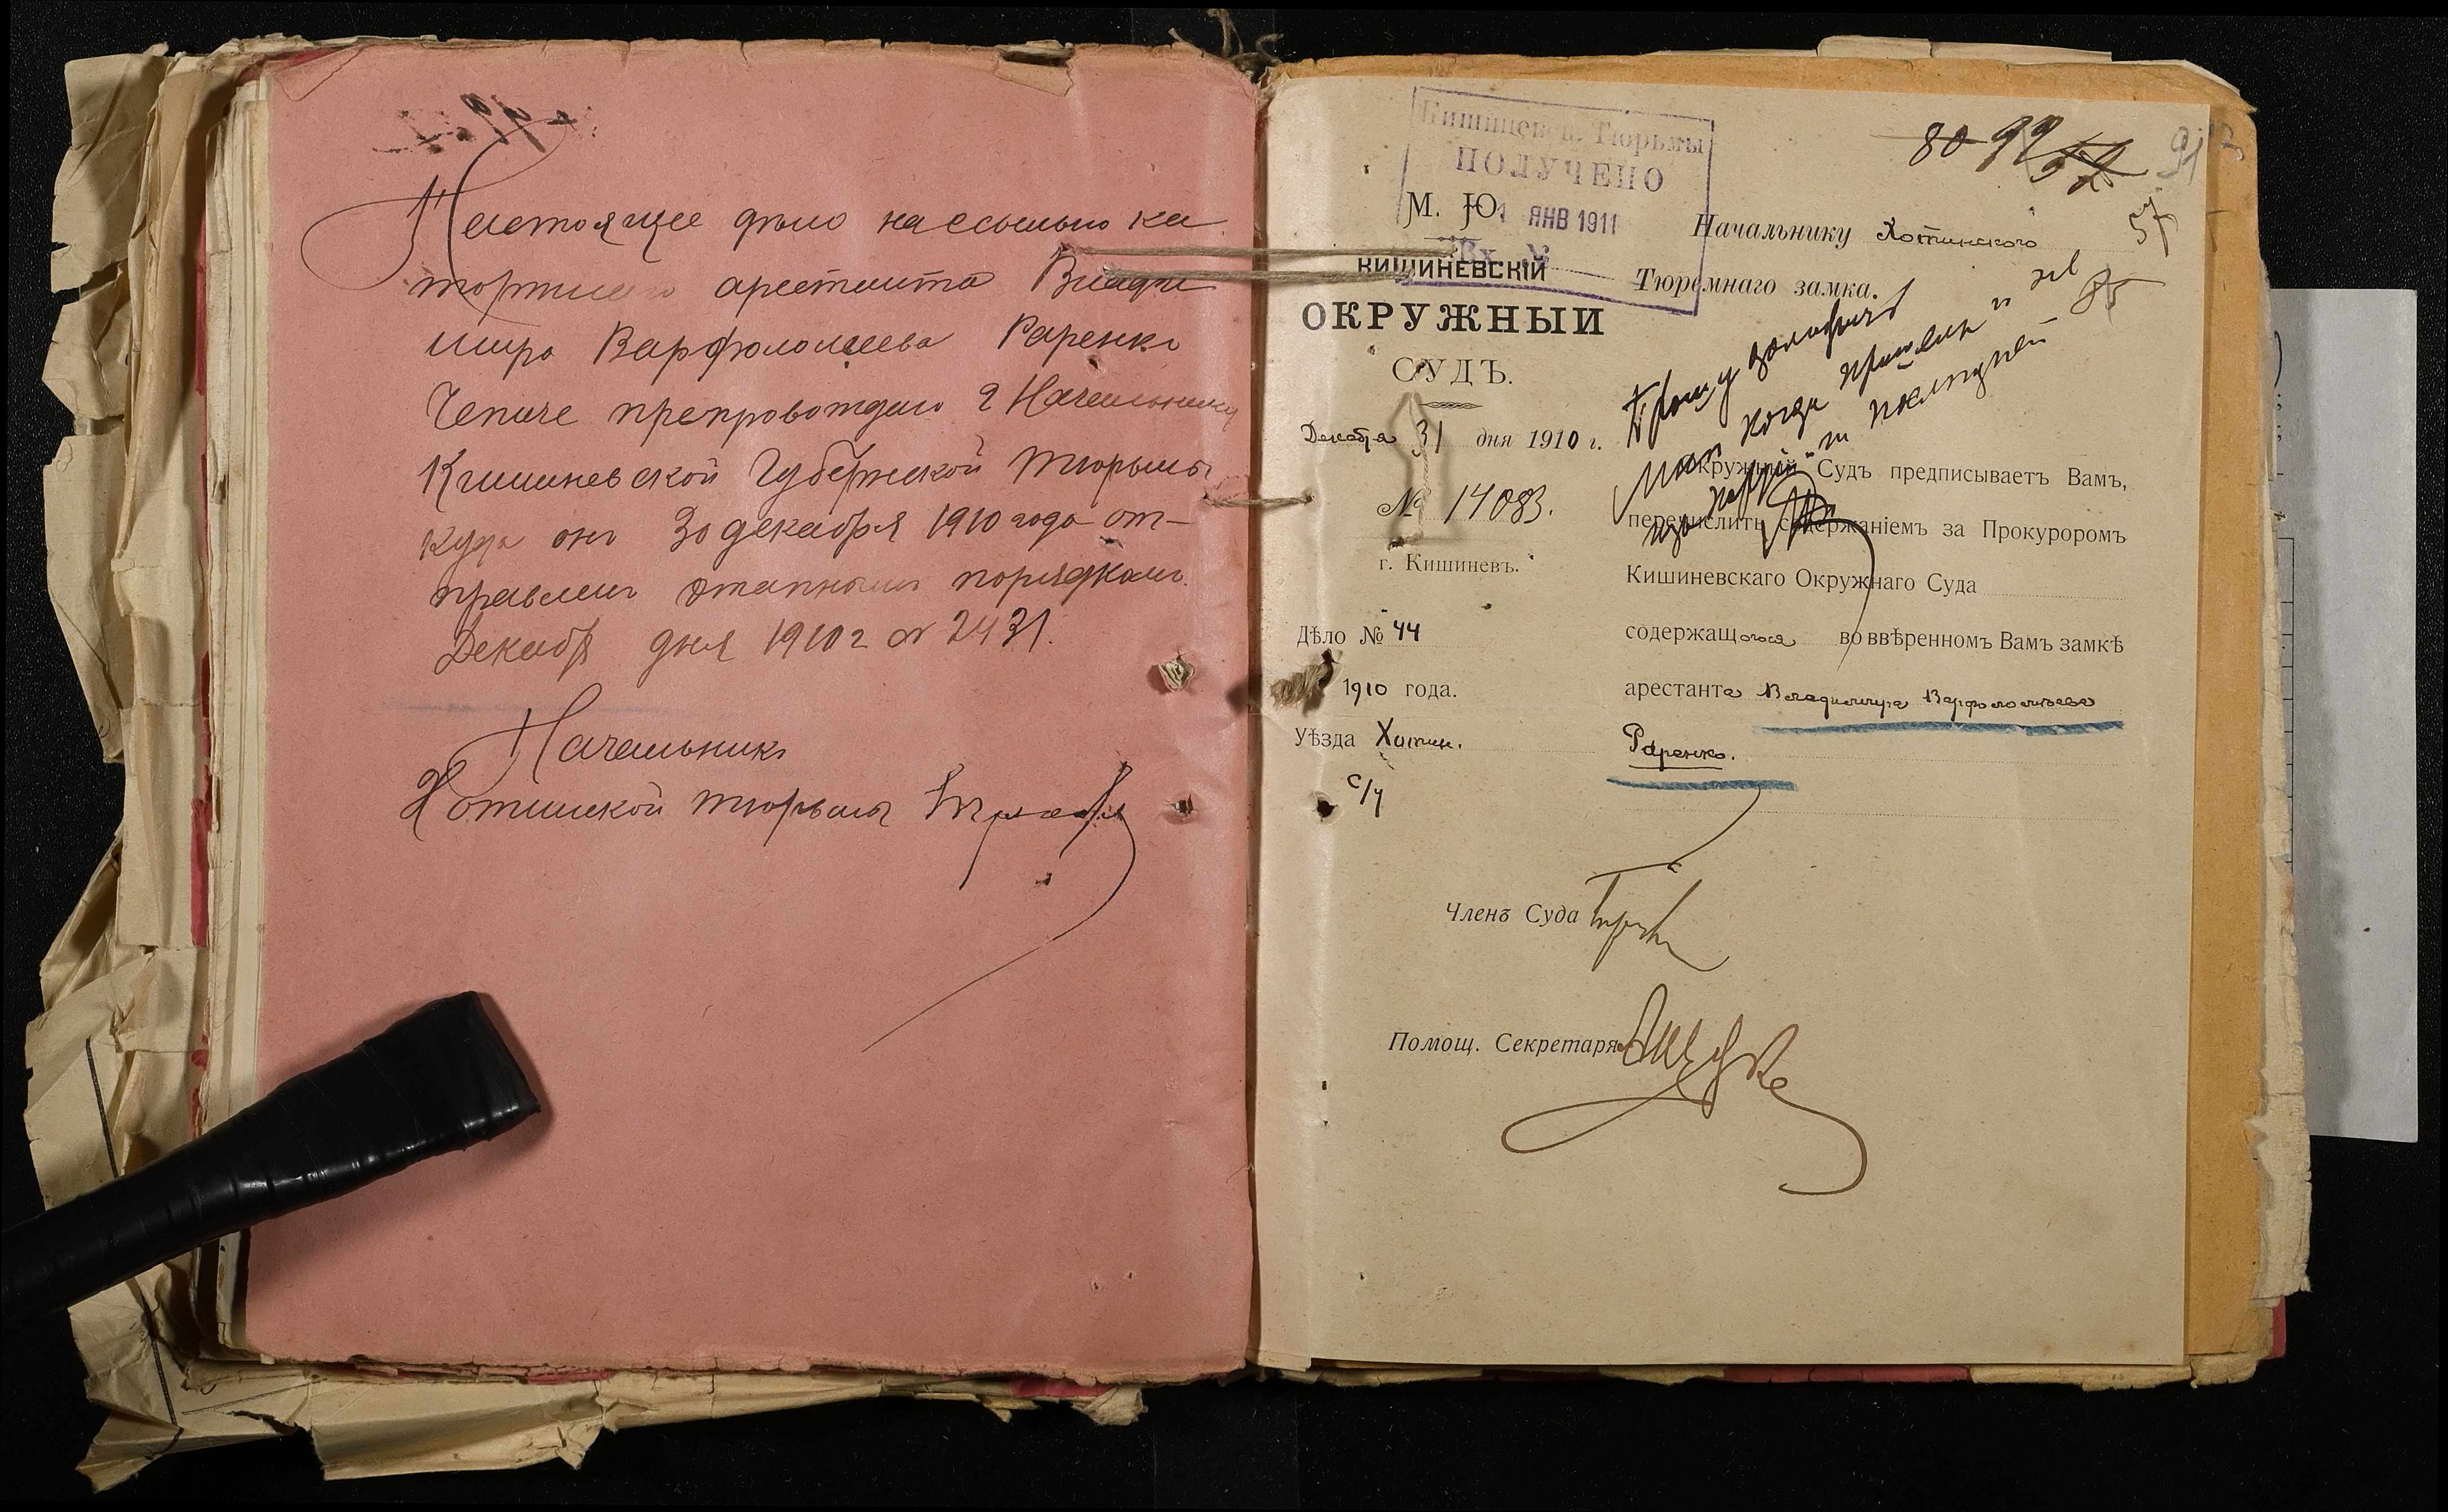 Настоящее дѣло на ссыльно ка
торжнаго арестанта Влади
мира Варфоломеева Раренко
Чепиче препровождаю г. Начальнику
Кишиневской Губернской тюрьмы
куда онъ 30 декабря 1910 года от-
правленъ этапнымъ порядкомъ.
Декабр дня 1910 г № 2431.
Начальникъ
Хотинской тюрьмы
Кишиневск. Тюрьмы
ПОЛУЧЕНО
1 ЯНВ 1911
Вх. №
80-99
91
57
85
М. Ю.
КИШИНЕВСКІЙ
ОКРУЖНЫЙ
СУДЪ.
Декабря 31 дня 1910 г.
№ 14083.
г. Кишиневъ.
Дѣло № 44
1910 года.
Уѣзда Хотин.
с/у
Начальнику Хотинского
Тюремнаго замка.
Прошу
когда пришелъ и
изъ партій
Окружный Судъ предписываетъ Вамъ,
перечислить содержаніемъ за Прокуроромъ
Кишиневскаго Окружнаго Суда
содержащогося во ввѣренномъ Вамъ замкѣ
арестанта Владимира Варфоломѣева
Раренко.
Членъ Суда
Помощ. Секретаря